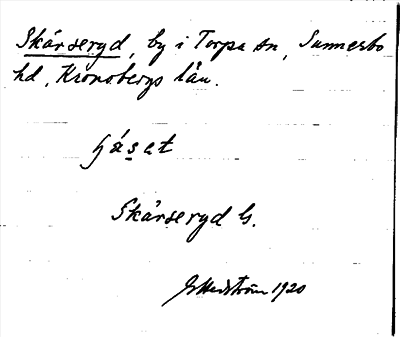 Skårseryd, by i Torpa sn, Sunnerbo
hd, Kronobergs län.
håset
Skårseryd G.
G Hedström 1920